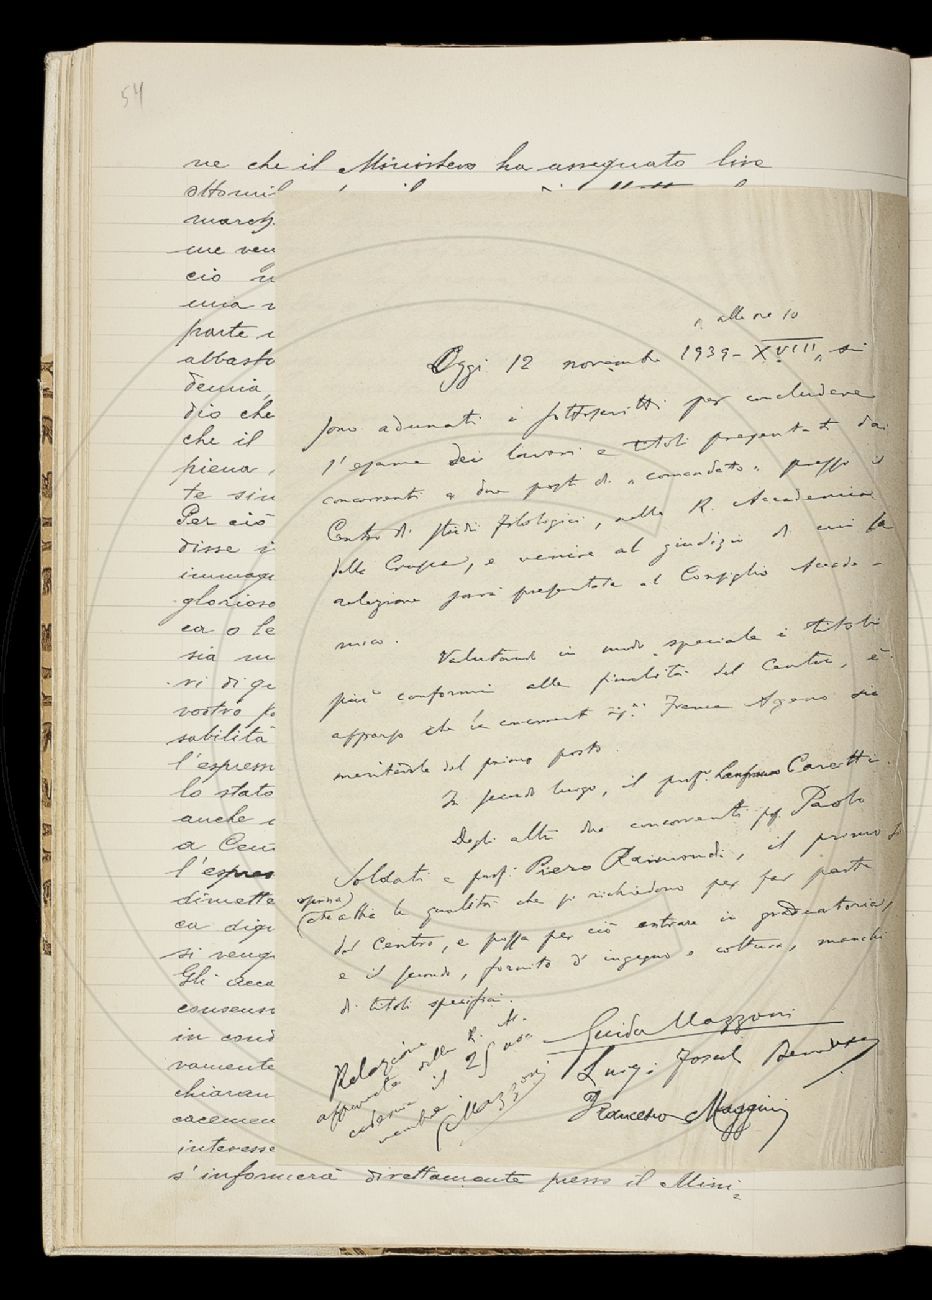 54
ne che il Ministero ha assegnato lire
ottomil
march
me ven
cio
una
parte
abbasta
demia,
dio che
che il
piena,
te sin
Per ciò
disse
immag
glorioso
ca o le
sia
vi di ge
vostro
sabilità
l'esprem
lo stato
anche
a Cen
l'espres
dimette
ca dign
si veng
Gli acca
consens
in cond
vamente
chiaram
cacemen
interesse
s'informerà direttamente presso il Mini=
alle ore 10
Oggi 12 novembre 1939-XVIII, si
sono adunati i sottoscritti per concludere
l'esame dei lavori e titoli presentati dai
concorrenti a due posti di "comandato" presso il
Centro di studi filologici, nella R. Accademia
della Crusca, e venire al giudizio di cui la
relazione sarà presentata al Consiglio Accade-
mico.
Valutando in modo speciale i titoli
più conformi alle finalità del Centro, è
apparso che la concorrente sig.na Franca Ageno sia
meritevole del primo posto.
In secondo luogo, il prof. Lanfranco Caretti.
Degli altri due concorrenti pff. Paolo
Soldati e prof. Piero Raimondi, il primo
(che abbia le qualità che si richiedono per far parte
del Centro, e possa per ciò entrare in graduatoria,
e il secondo, fornito d'ingegno e coltura, manchi
di titoli specifici.
Guido Mazzoni
Luigi Foscolo Benedetto
Francesco Maggini
Relazione
approvata dalla R. Ac-
cademia il 25 nov
vembre.
(Mazzoni)